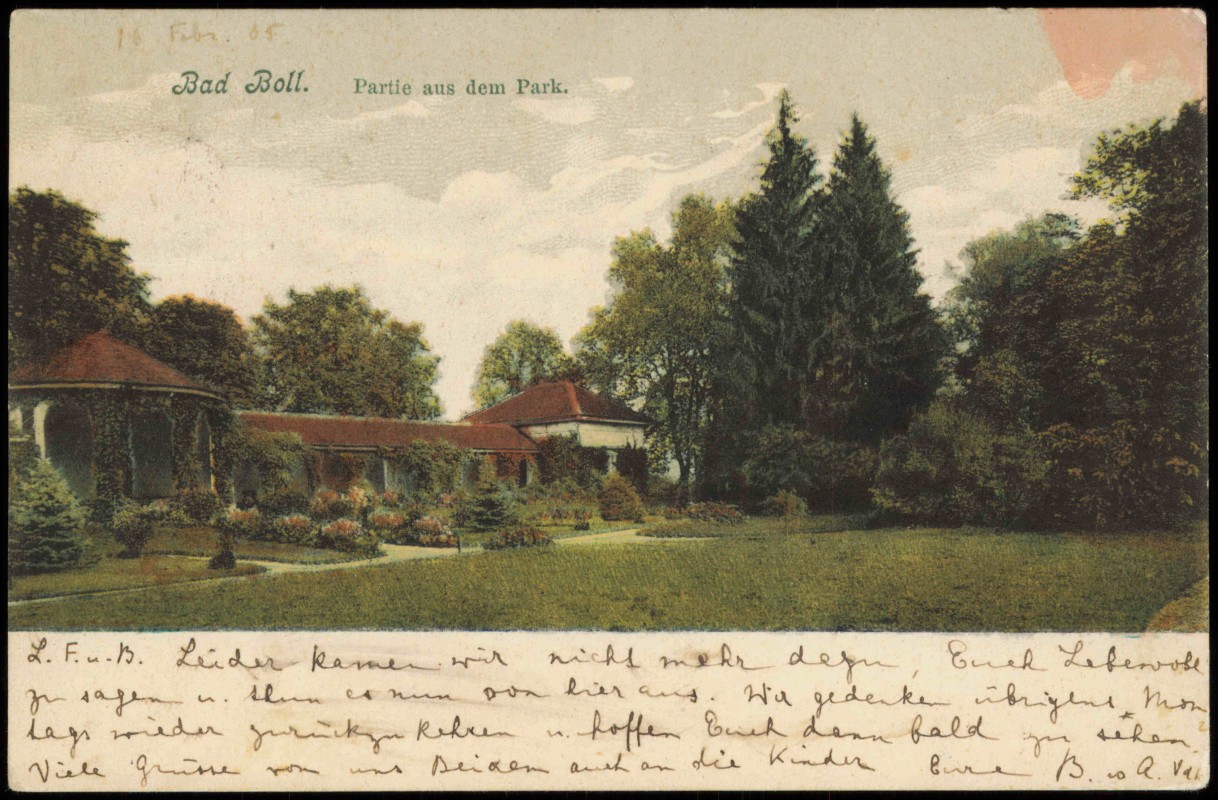 16 Febr. 05
Bad Boll. Partie aus dem Park.
L. F. u. B. Leider kamen wir nicht mehr dazu, Euch Lebewohl
zu sagen u. thun es nun von hier aus. Wir gedenken übrigens Mon
tags wieder zurückzukehren u. hoffen Euch dann bald zu sehen.
Viele Grüsse von uns Beiden auch an die Kinder Eure B. u A.